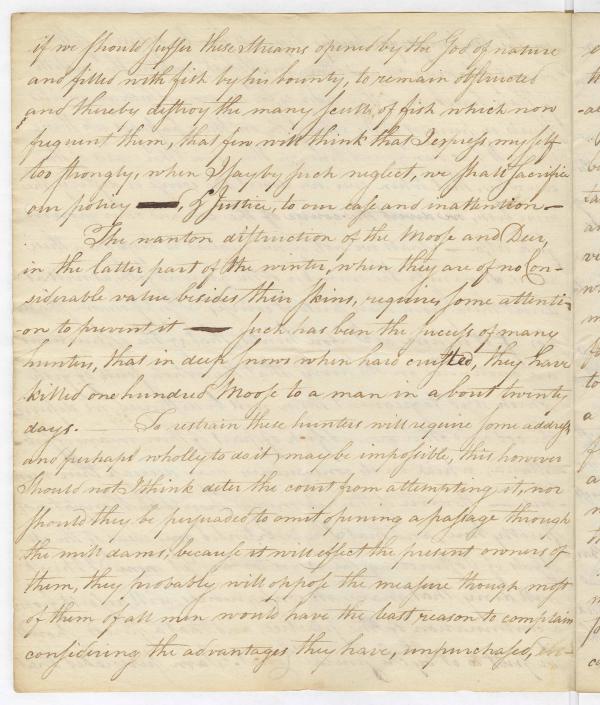 if we should suffer these streams opened by the God of nature
and filled with fish by his bounty, to remain obstructed
and thereby distroy the many sculls of fish which now
frequent them, that few will think that I express myself
too strongly, when I say by such neglect, we shall sacrifice
our policy —, & Justice, to our ease and inattention—
The wanton distruction of the Moose and Deer,
in the latter part of the winter, when they are of no Con-
siderable value besides their skins, requires some attenti-
-on to prevent it — such has been the success of many
hunters, that in deep snows when hard crusted, they have
killed one hundred Moose to a man in about twenty
days. — To restrain these hunters will require some address
and perhaps wholly to do it, may be impossible, this however
should not I think deter the court from attempting it, nor
should they be persuaded to omit opening a passage through
the mill dams; because it will effect the present owners of
them, they probably will oppose the measure though most
of them of all men would have the least reason to complain
considering the advantages they have, unpurchased,